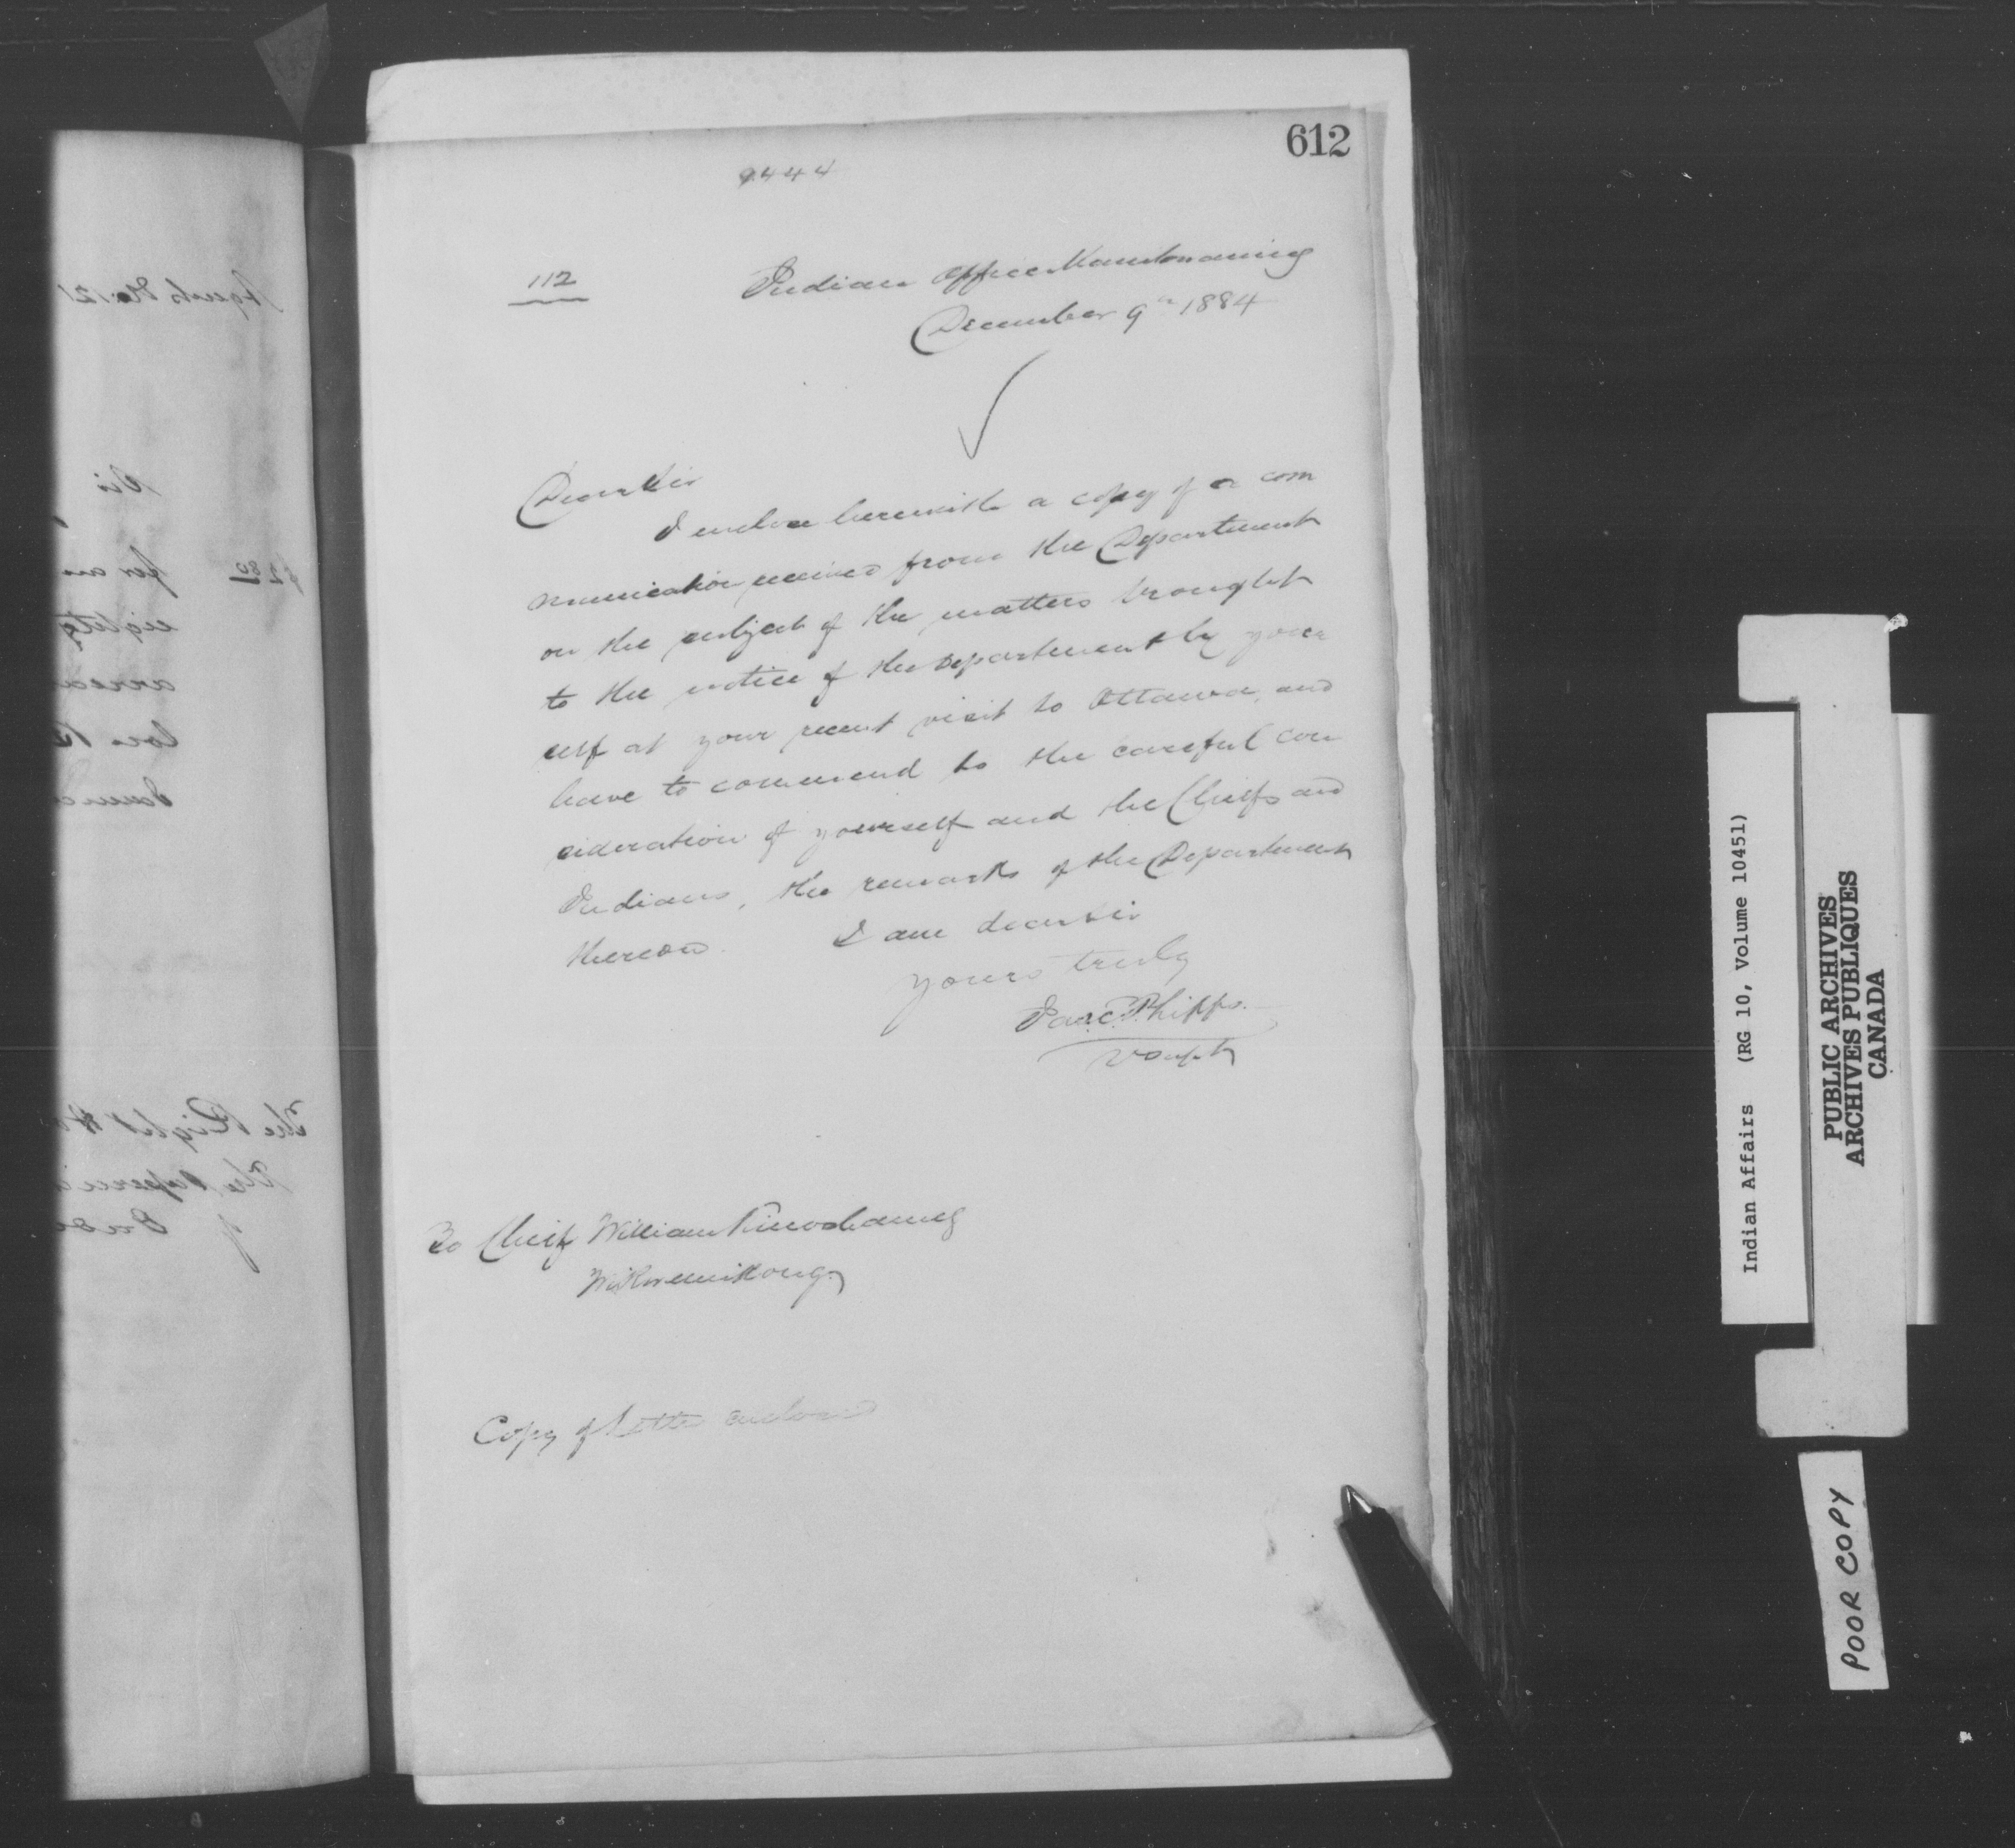 612
9444
112
Indian Office Manitowaning
December 9th 1884
Dear Sir
I enclose herewith a copy of a com
munication received from the Department
on the subject of the matters brought
to the notice of the Department by your
self at your recent visit to Ottawa, and
have to commend to the careful con
sideration of yourself and the Chiefs and
Indians, the remarks of the Department
thereon. I am dear Sir
yours truly
Jas. C. Phipps.
V Supt
To Chief William Kinoshameg
Wikwemikong
Copy of Letter enclosed
Agents No 121
Sir
per an
eighty
arrea
lou
$2 80
The Right Ho
The Superin
of Indi
Indian Affairs (RG 10, Volume 10451)
PUBLIC ARCHIVES
ARCHIVES PUBLIQUES
CANADA
POOR COPY